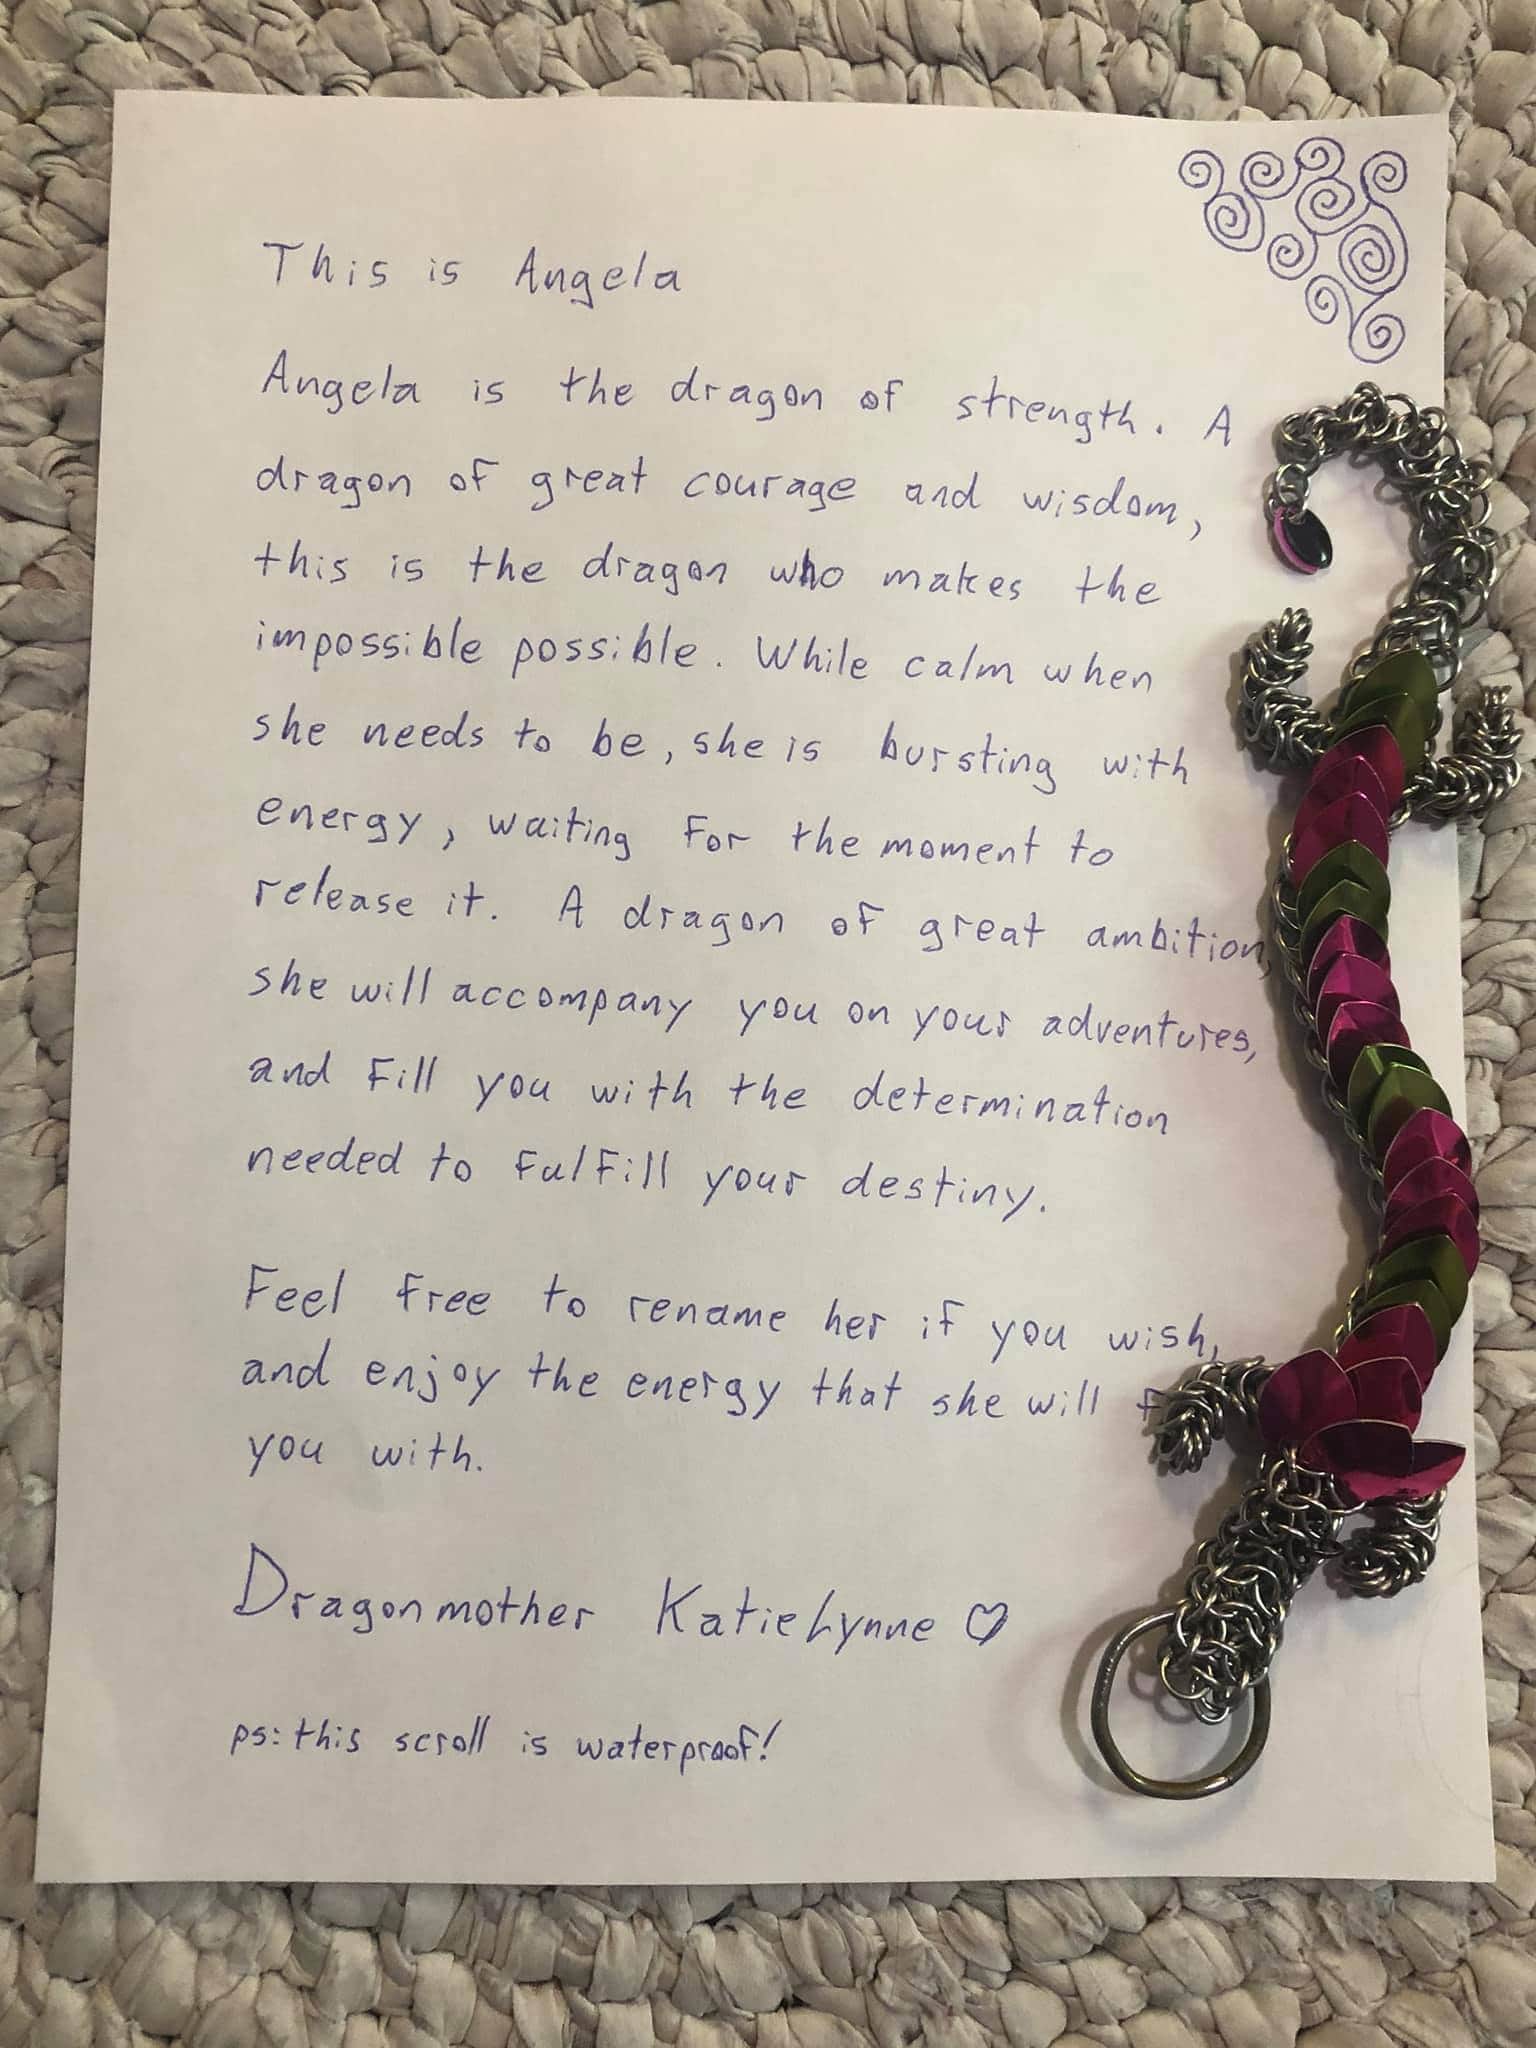 This is Angela
Angela is the dragon of strength. A
dragon of great courage and wisdom,
this is the dragon who makes the
impossible possible. While calm when
she needs to be, she is bursting with
energy, waiting for the moment to
release it. A dragon of great ambition,
she will accompany you on your adventures,
and fill you with the determination
needed to fulfill your destiny.
Feel free to rename her if you wish,
and enjoy the energy that she will
you with.
Dragonmother KatieLynne ♡
ps: this scroll is waterproof!